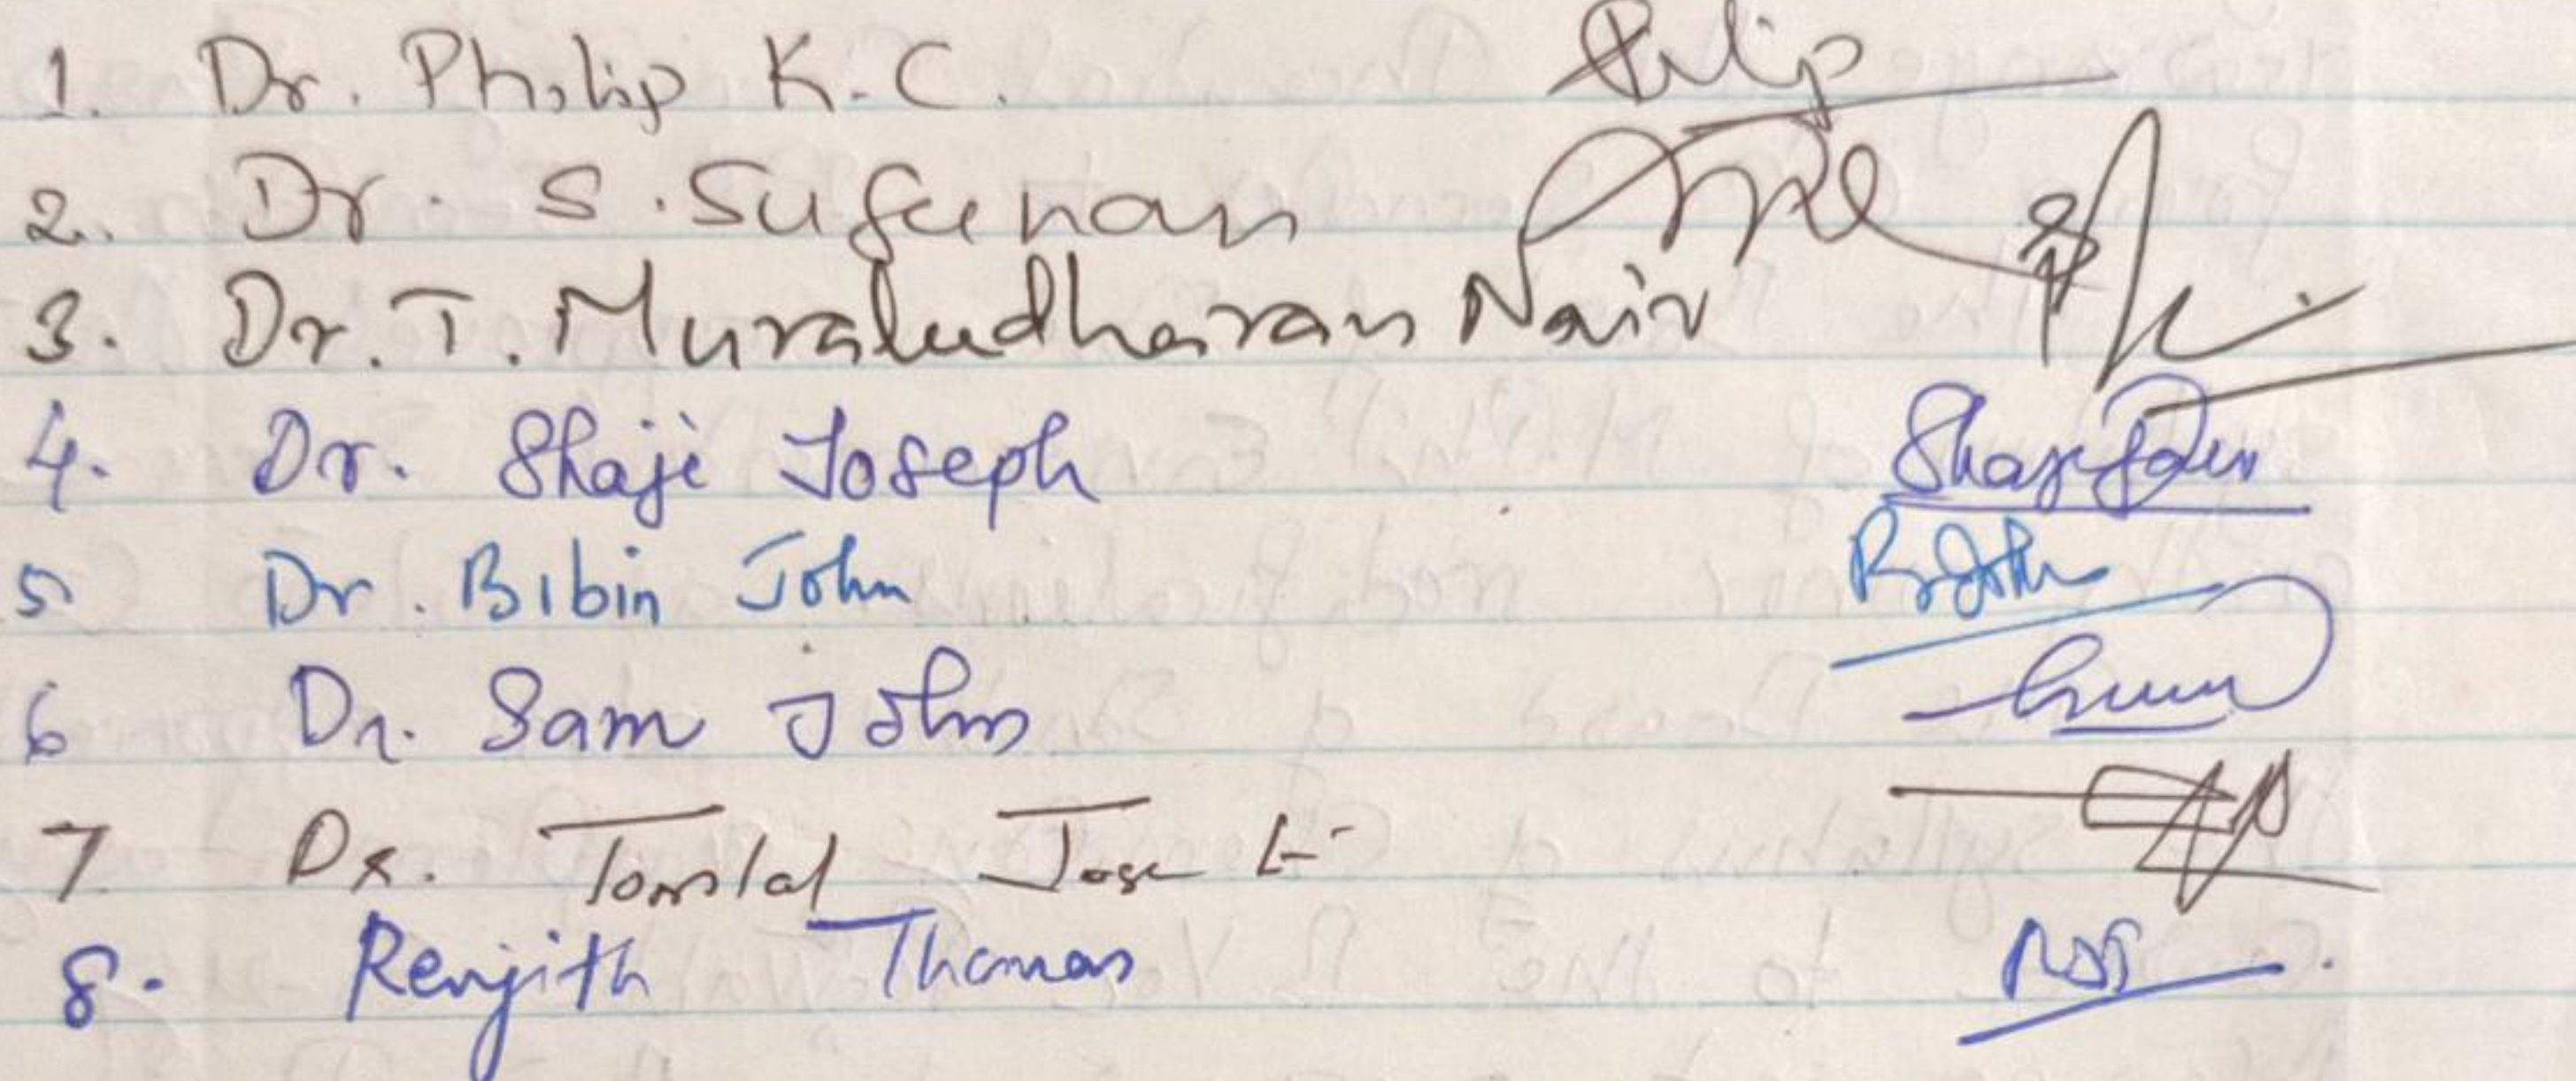 1. Dr. Philip K.C.
2. Dr. S. Sugunan
3. Dr. T. Muraludharan Nair
4. Dr. Shaji Joseph
5 Dr. Bibin John
6 Dr. Sam John
7 Dr. Tomlal Jose E
8. Renjith Thomas